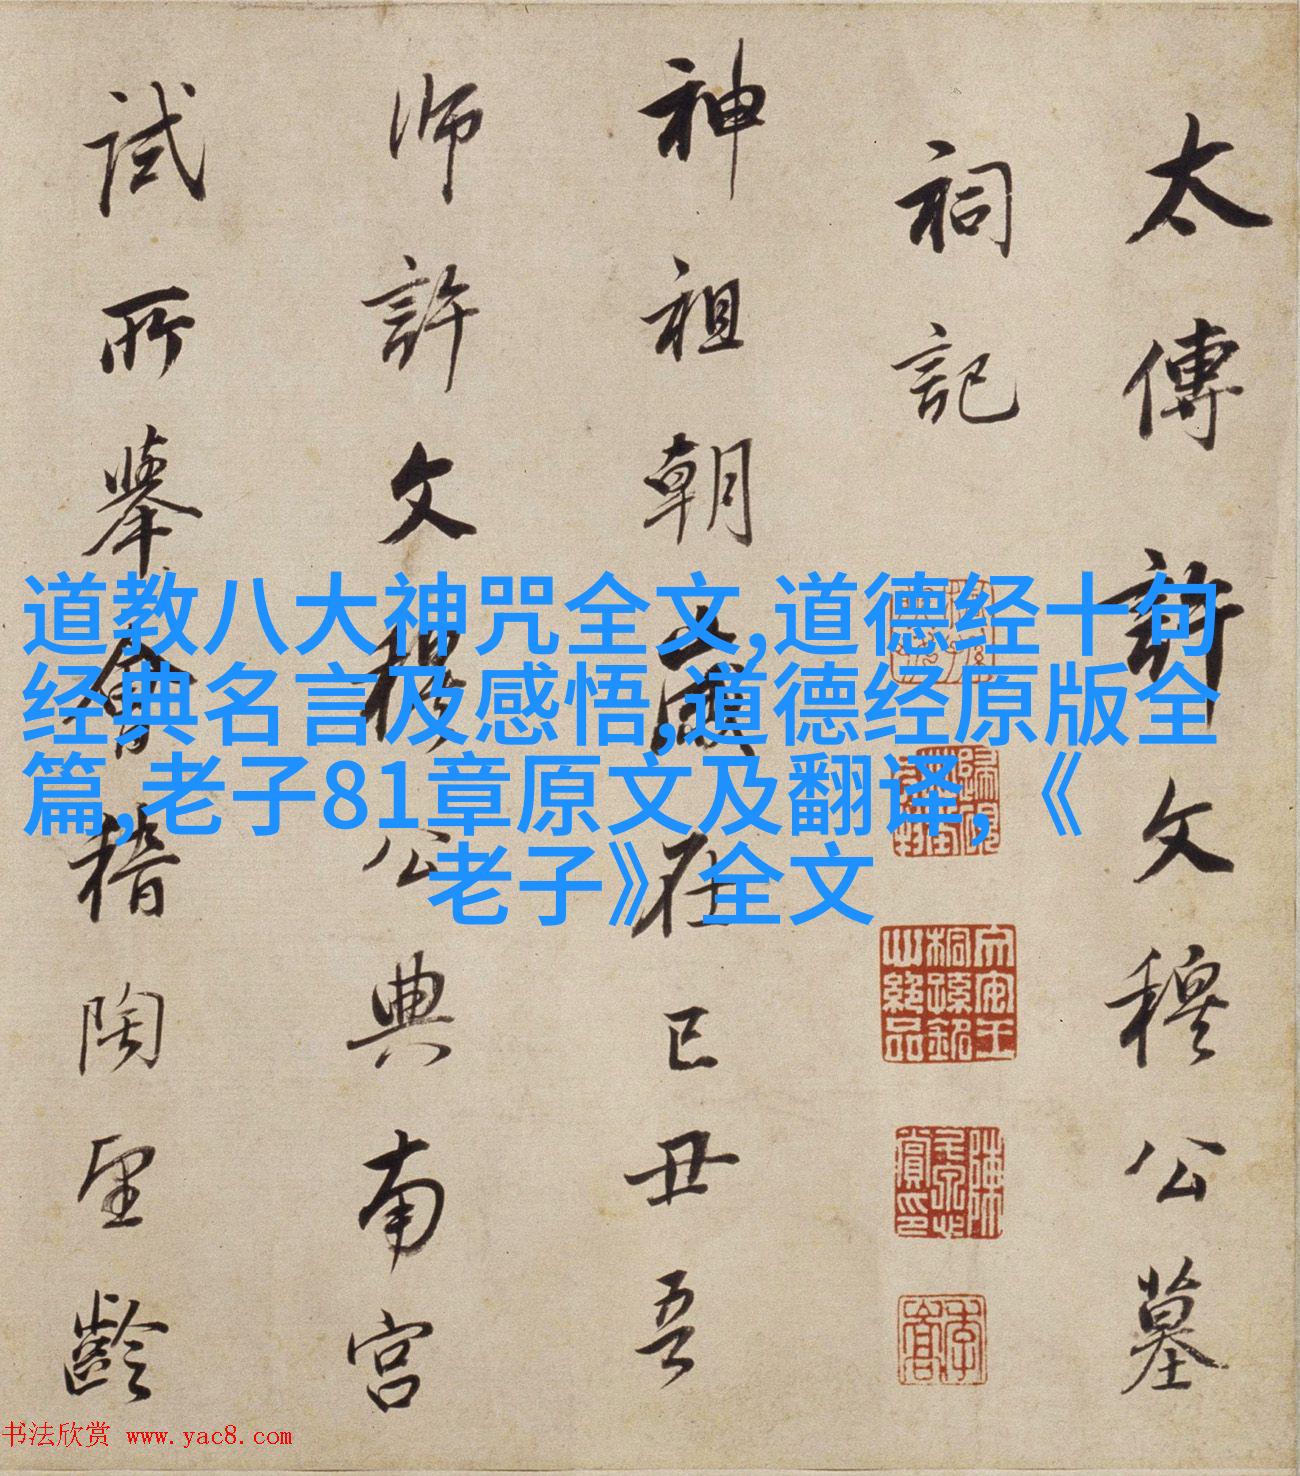 太傅許文穆公墓
祠記
神祖朝歲在己丑吾
師許文穆公典南宮
試所舉會稽陶望齡
道教八大神咒全文,道德经十句
经典名言及感悟,道德经原版全
篇,老子81章原文及翻译,《
老子》全文
书法欣赏 www.yac8.com